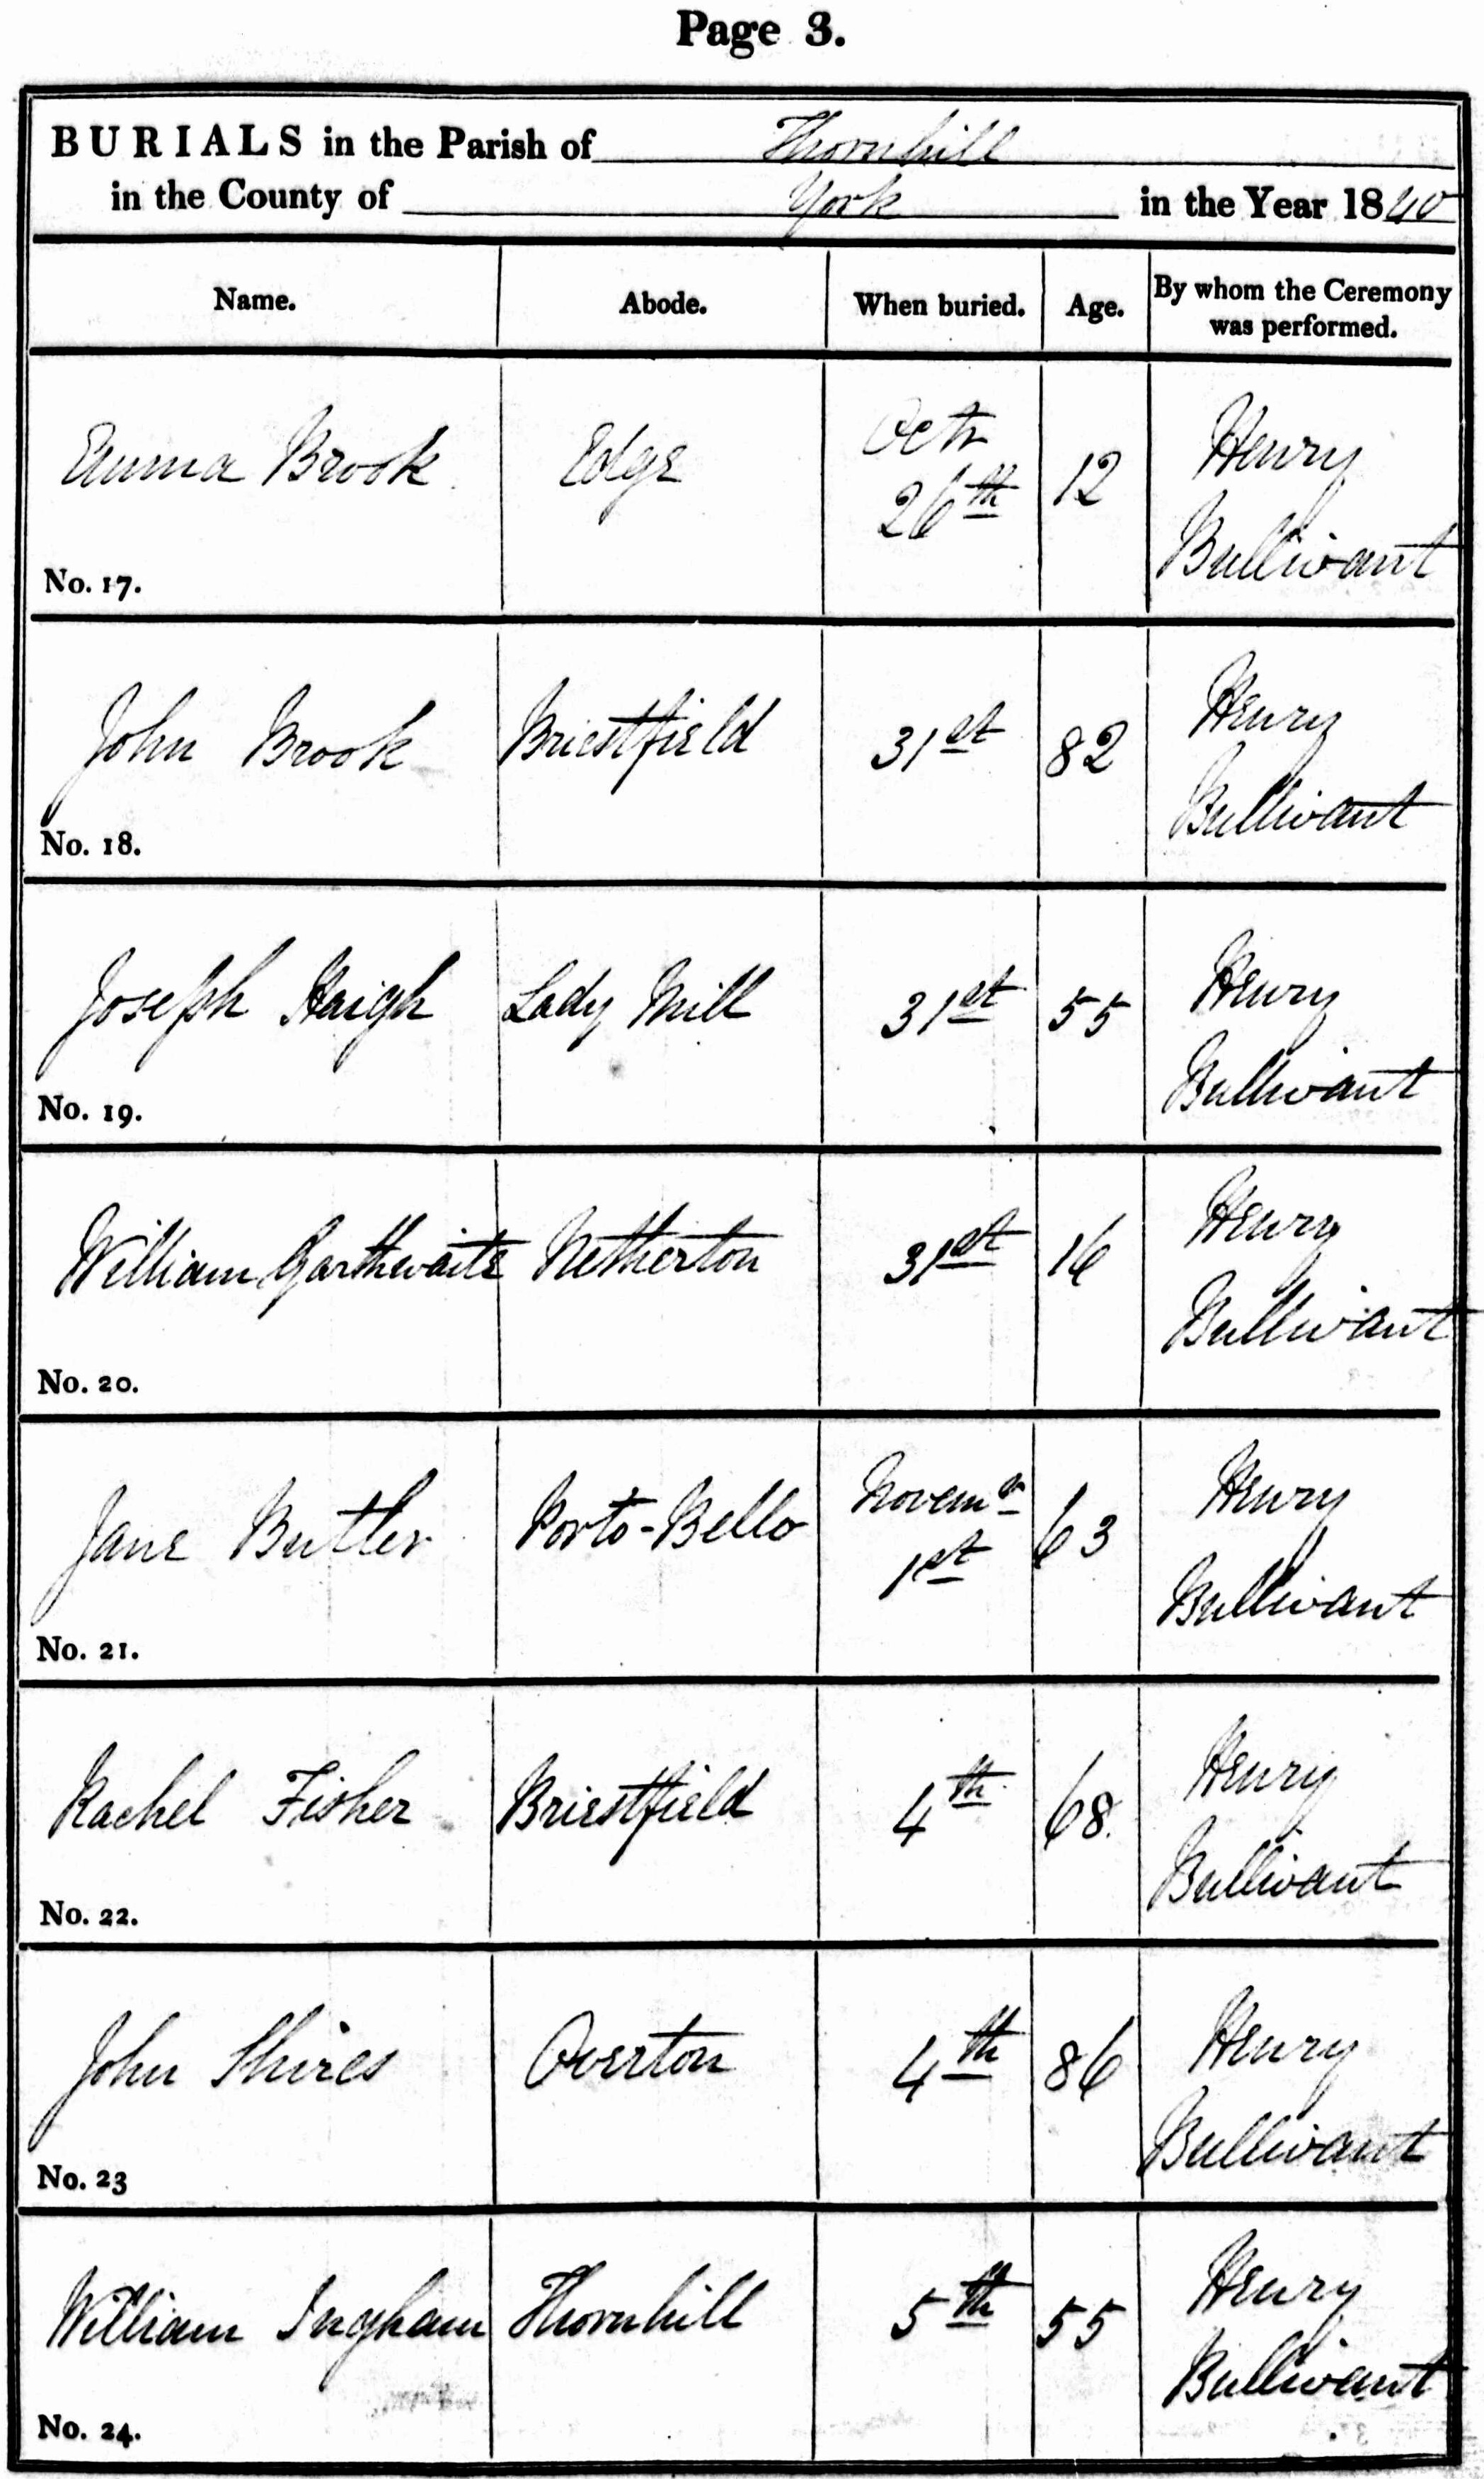 Page 3.
BURIALS in the Parish of Thornhill
in the County of York in the Year 1840
Name. Abode. When buried. Age. By whom the Ceremony was performed.
Emma Brook Edge Octr 26th 12 Henry Bullivant
No. 17.
John Brook Briestfield 31st 82 Henry Bullivant
No. 18.
Joseph Haigh Lady Mill 31st 55 Henry Bullivant
No. 19.
William Garthwaite Netherton 31st 16 Henry Bullivant
No. 20.
Jane Butler Porto-Bello Novemr 1st 63 Henry Bullivant
No. 21.
Rachel Fisher Briestfield 4th 68 Henry Bullivant
No. 22.
John Shires Overton 4th 86 Henry Bullivant
No. 23
William Ingham Thornhill 5th 55 Henry Bullivant
No. 24.